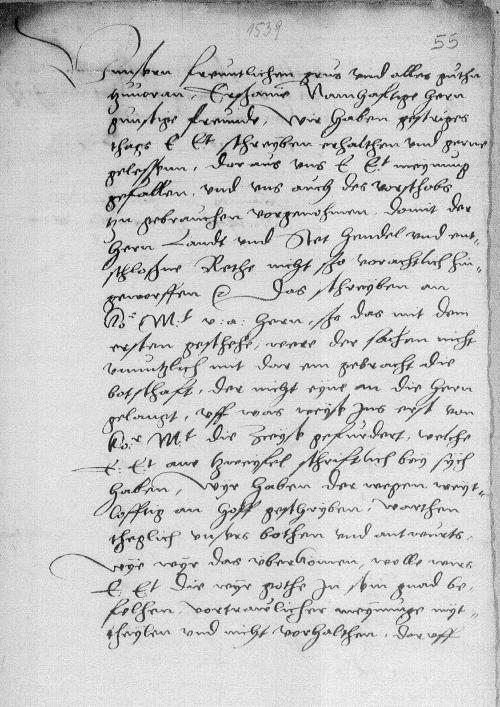 1539
55
Unsern freuntlichen grus und alles guthn
zuuoran, Ersame Namhafftige hern
gunstige freunde, Wir haben gestriges
thags E Et schreyben erhalthen und gerne
gelessenn, dar aus uns E Et meynung
gefallen, und uns auch des vorsthobs
zu gebrauchen vorgenohmen, domit der
hern Landt und Stet hendel und ent-
schlosne Rethe nicht sso vorachtlich hin-
geworffen Das schreyben an
Ko: Mt u: a: hern, sso das mit dem
ersten gescheh, were der sachen nicht
unnutzlich mit dar ein gebracht die
botschafft, der nicht eyne an die hern
gelangt, uff was weysz Ins erst von
Ko: Mt die gefurdert, welche
E: Et ane zweyfel schrifftlich bey sych
haben, Wyr haben der wegen weyt-
lofftig an hoff geschryben, warthen
theglich unsers bothen und antwurts,
wye wyr das uberkomen, wolle wirs
E Et die wyr gothe In seyn gnad be-
felhen, vortrawlicher meynunge mit-
theylen und nicht vorhalthen, dar uff